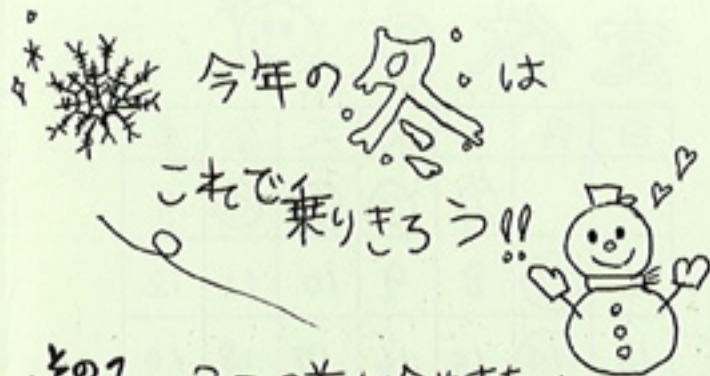 今年の冬は
これで乗りきろう!!
その1